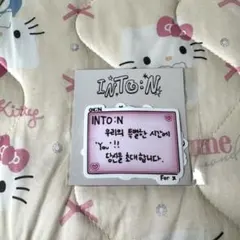 INTO:N
INTO:N
우리의 특별한 시간에
"You"!!
당신을 초대합니다.
For x
Kitty